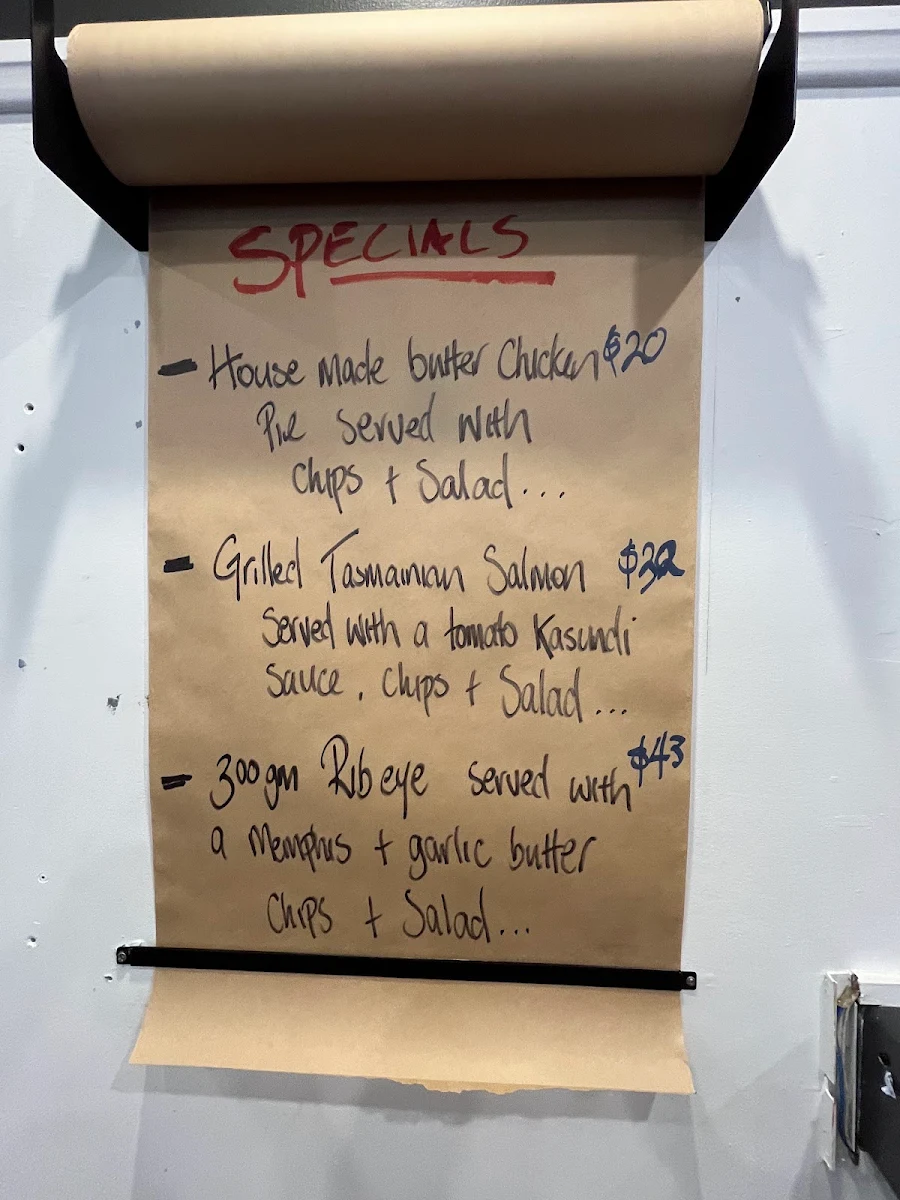 SPECIALS
- House made butter Chicken $20
Pie served with
Chips + Salad...
- Grilled Tasmainian Salmon $32
Served with a tomato Kasundi
Sauce, Chips + Salad...
- 300gm Rib eye served with $43
a Memphis + garlic butter
Chips + Salad...